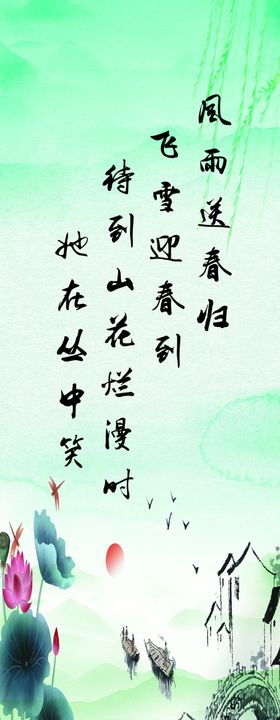 风雨送春归
飞雪迎春到
待到山花烂漫时
她在丛中笑